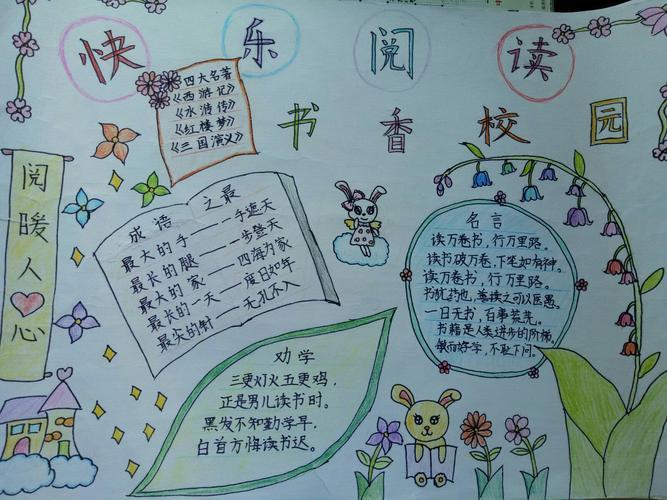 快乐阅读
书香校园
四大名著
《西游记》
《水浒传》
《红楼梦》
《三国演义》
阅暖人心
成语之最
最大的手——一手遮天
最长的腿——一步登天
最大的家——四海为家
最长的一天——度日如年
最尖的针——无孔不入
名言
读万卷书，行万里路。
读书破万卷，下笔如有神。
读万卷书，行万里路。
书犹药也，善读之可以医愚。
一日无书，百事荒芜。
书籍是人类进步的阶梯。
敏而好学，不耻下问。
劝学
三更灯火五更鸡，
正是男儿读书时。
黑发不知勤学早，
白首方悔读书迟。